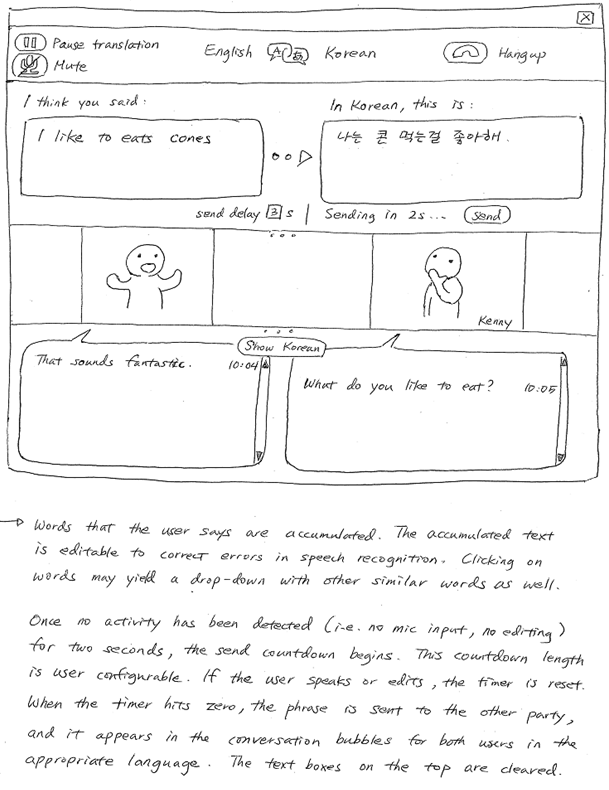 Pause translation
Mute
English
Korean
Hangup
I think you said:
I like to eats cones
In Korean, this is:
나는 콘 먹는걸 좋아해.
send delay 3 s
Sending in 2s...
Send
Kenny
Show Korean
That sounds fantastic. 10:04
What do you like to eat? 10:05
Words that the user says are accumulated. The accumulated text
is editable to correct errors in speech recognition. Clicking on
words may yield a drop-down with other similar words as well.
Once no activity has been detected (i.e. no mic input, no editing)
for two seconds, the send countdown begins. This countdown length
is user configurable. If the user speaks or edits, the timer is reset.
When the timer hits zero, the phrase is sent to the other party,
and it appears in the conversation bubbles for both users in the
appropriate language. The text boxes on the top are cleared.